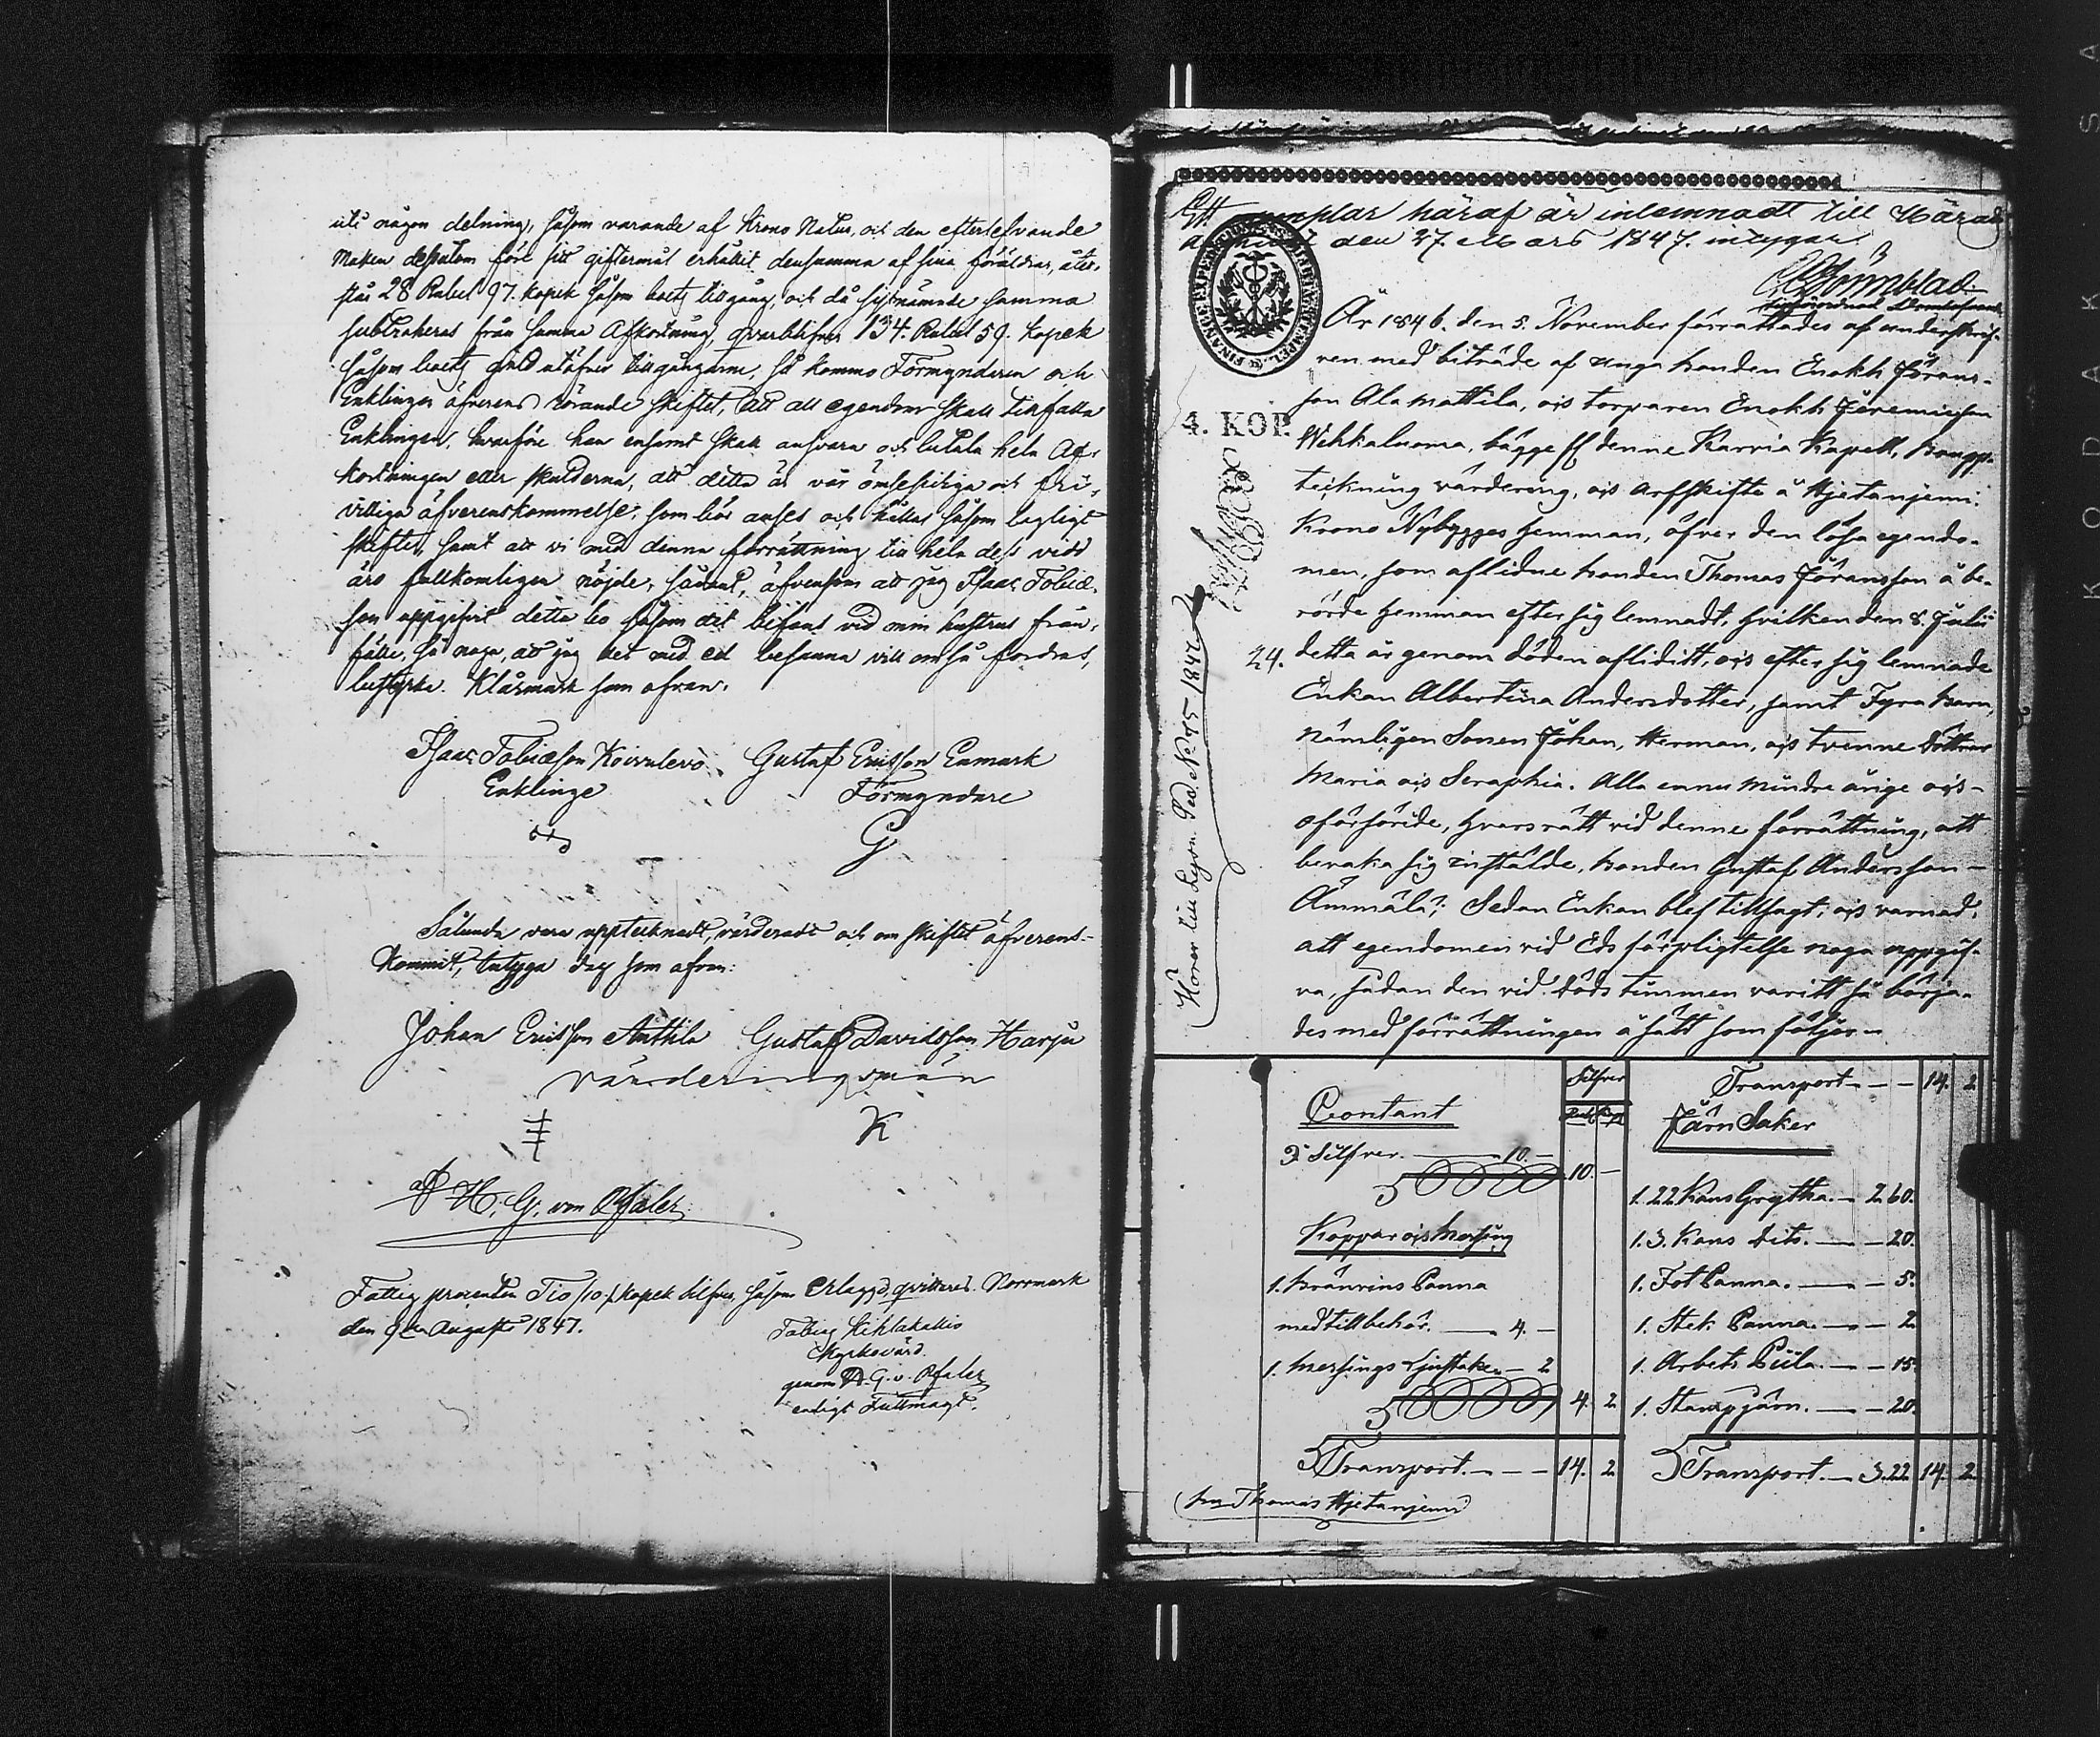 uti någon delning, såsom varande af Krono Natur, och den efterlefvande
Maken dessutom före sitt giftermål erhållit densamma af sina föräldrar, åter-
står 28 Rubel 97. Kopek såsom boets tillgång, och då sistnämnde summa
subtraheras från summa Afkortning, qvarblifver 134. Rubel 59. Kopek
såsom boets gäld utöfver tillgångarne, så kommo Förmyndaren och
Enklingen öfverens rörande skiftet, att all egendom skall tillfalla
Enklingen, hvarföre han ensamt skall ansvara och betala hela Af-
kortningen eller skulderna, att detta är vår ömsesidiga och fri-
villiga öfverenskommelse, som bör anses och hållas såsom lagligt
skifte, samt att vi med denna förrättning till hela dess vidd
äro fullkomligen nöjde, såvält, äfvensom att jag Isaac Tobiæ-
son uppgifvit detta bo såsom det befans vid min hustrus från-
fälle, så noga, att jag det med ed besanna vill om så fordras,
betygas. Klåsmark som ofvan.
Isaac Tobiæson Koivulevo Gustaf Ericsson Enmark
Enklinge Förmyndare
G
Sålunda vara upptecknadt, värderadt och om skiftet öfverens-
kommit, intyga dag som ofvan:
Johan Ericsson Anttila Gustaf Davidsson Harju
värderingsmän
K
H. G. von Pfaler
Fattig procenten Tio /10/ kopek silfver, såsom erlagd, qvitteras. Norrmark
den 9de Augusti 1847.
Tobias Kihlakallio
Kyrkovärd.
genom H. G. v. Pfaler
enligt Fullmagt.
Ett exemplar häraf är inlemnadt till Härads
den 27. Mars 1847. intygar
4. KOP.
År 1846. den 5. November förrättades af underskrif-
ven med biträde af unga bonden Enokh Jörans-
son Ala Mattila, och torparen Enokh Jeremiæson
Wehkaluoma, bägge ifrån denne Karvia Kapell, Boupp-
teckning värdering, och arfskifte å Hjetanjemi
Krono Nybygges Hemman, öfver den lösa egendo-
men, som aflidne bonden Thomas Jöransson å be-
rörde hemman efter sig lemnadt, hvilken den 8. Julii
24. detta år genom döden afliditt, och efter sig lemnade
Enkan Albertina Andersdotter, samt Fyra barn,
nämligen Sonen Johan, Herman, och tvenne döttrar
Maria och Seraphia. Alla ennu mindre årige och
oförsörjde, hvars rätt vid denne förrättning, att
bevaka sig instälde, bonden Gustaf Andersson
Ämmälä; Sedan Enkan blef tillsagt, och varnad,
att egendomen vid Eds förpligtelse noga uppgif-
va, sådan den vid dödstimmen varitt så börja-
des med förrättningen å sätt som följer
Hörer till Lagm. Ped No 45 1847
Silfver Transport 14. 2
Contant Järn Saker
I Silfver. 10. 10.
1. 22 Kans Grytha. 2 60.
Koppar och Messing 1. 3. Kans dito. 20.
1. Bränvins Panna 1. Fot Panna. 5.
med tillbehör. 4. 1. Stek Panna. 2
1. Messings Ljustake. 2 1. Arbets Piila. 15
4. 2 1. Stamp järn. 20.
Transport. 14. 2 Transport. 3.22 14. 2
Thomas Hjetanjemi